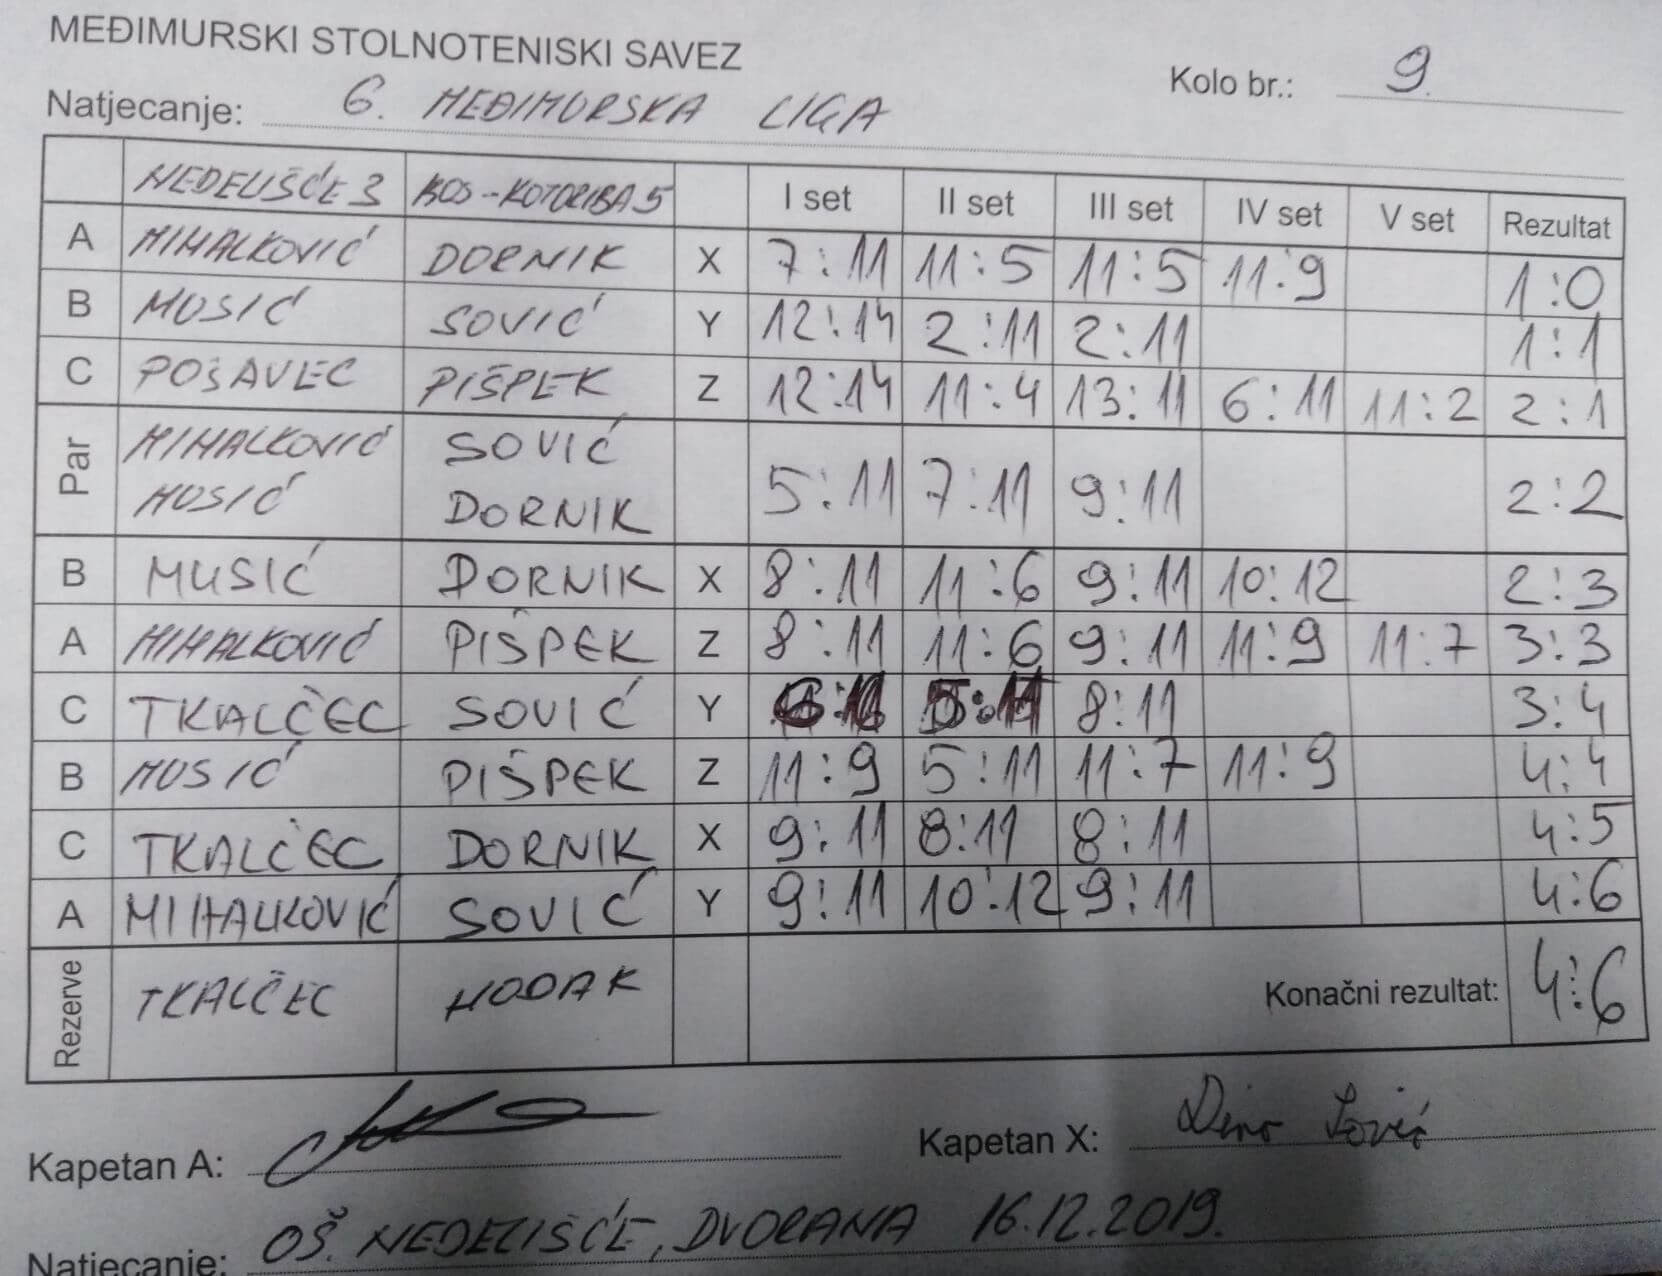 MEĐIMURSKI STOLNOTENISKI SAVEZ
Kolo br.: 9.
Natjecanje: 6. MEĐIMURSKA LIGA
NEDELIŠĆE 3 KOS-KOTORIBA 5 I set II set III set IV set V set Rezultat
A MIHALKOVIĆ DORNIK X 7:11 11:5 11:5 11:9 1:0
B MUSIĆ SOVIĆ Y 12:14 2:11 2:11 1:1
C POŠAVEC PIŠPEK Z 12:14 11:4 13:11 6:11 11:2 2:1
Par MIHALKOVIĆ SOVIĆ
MUSIĆ DORNIK 5:11 7:11 9:11 2:2
B MUSIĆ DORNIK X 8:11 11:6 9:11 10:12 2:3
A MIHALKOVIĆ PIŠPEK Z 8:11 11:6 9:11 11:9 11:7 3:3
C TKALČEC SOVIĆ Y 5:11 8:11 3:4
B MUSIĆ PIŠPEK Z 11:9 5:11 11:7 11:9 4:4
C TKALČEC DORNIK X 9:11 8:11 8:11 4:5
A MIHALKOVIĆ SOVIĆ Y 9:11 10:12 9:11 4:6
Rezerve TKALČEC HODAK Konačni rezultat: 4:6
Kapetan A: Kapetan X: Dino Sović
Natjecanje: OŠ. NEDELIŠĆE, DVORANA 16.12.2019.